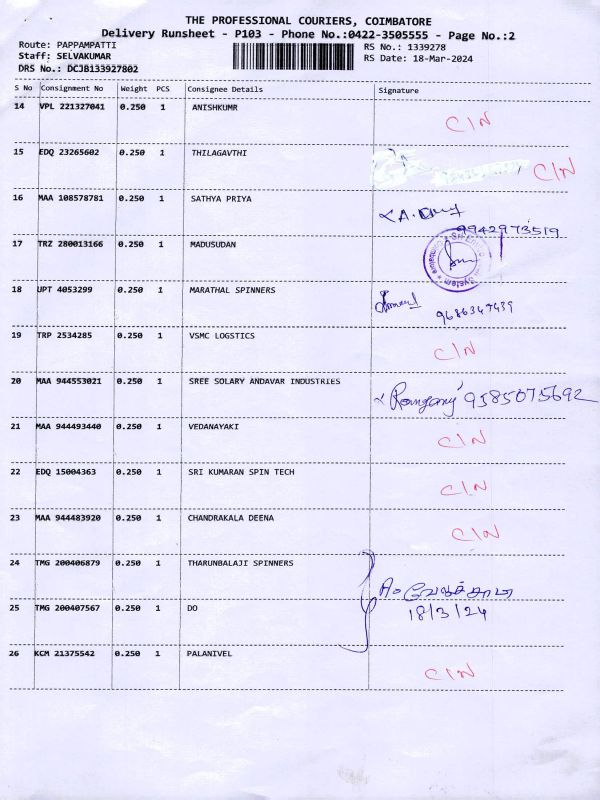 THE PROFESSIONAL COURIERS, COIMBATORE
Delivery Runsheet - P103 - Phone No.:0422-3505555 - Page No.:2
Route: PAPPAMPATTI RS No.: 1339278
Staff: SELVAKUMAR RS Date: 18-Mar-2024
DRS No.: DCJB133927802
S No Consignment No Weight PCS Consignee Details Signature
14 VPL 221327041 0.250 1 ANISHKUMR C/N
15 EDQ 23265602 0.250 1 THILAGAVTHI C/N
16 MAA 108578781 0.250 1 SATHYA PRIYA
9942973519
17 TRZ 280013166 0.250 1 MADUSUDAN
18 UPT 4053299 0.250 1 MARATHAL SPINNERS
9686347439
19 TRP 2534285 0.250 1 VSMC LOGSTICS C/N
20 MAA 944553021 0.250 1 SREE SOLARY ANDAVAR INDUSTRIES 9585075692
21 MAA 944493440 0.250 1 VEDANAYAKI C/N
22 EDQ 15004363 0.250 1 SRI KUMARAN SPIN TECH C/N
23 MAA 944483920 0.250 1 CHANDRAKALA DEENA C/N
24 TMG 200406879 0.250 1 THARUNBALAJI SPINNERS
25 TMG 200407567 0.250 1 DO 18/3/24
26 KCM 21375542 0.250 1 PALANIVEL C/N